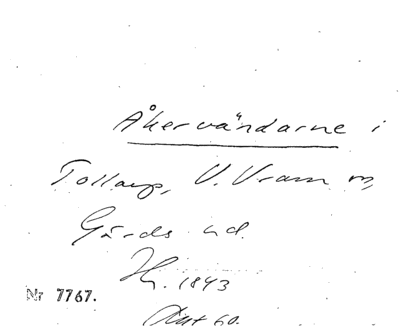 Åkervändarne i
Tollarp, V. Vram
Gärds hd.
1843
Nr 7767.
60.